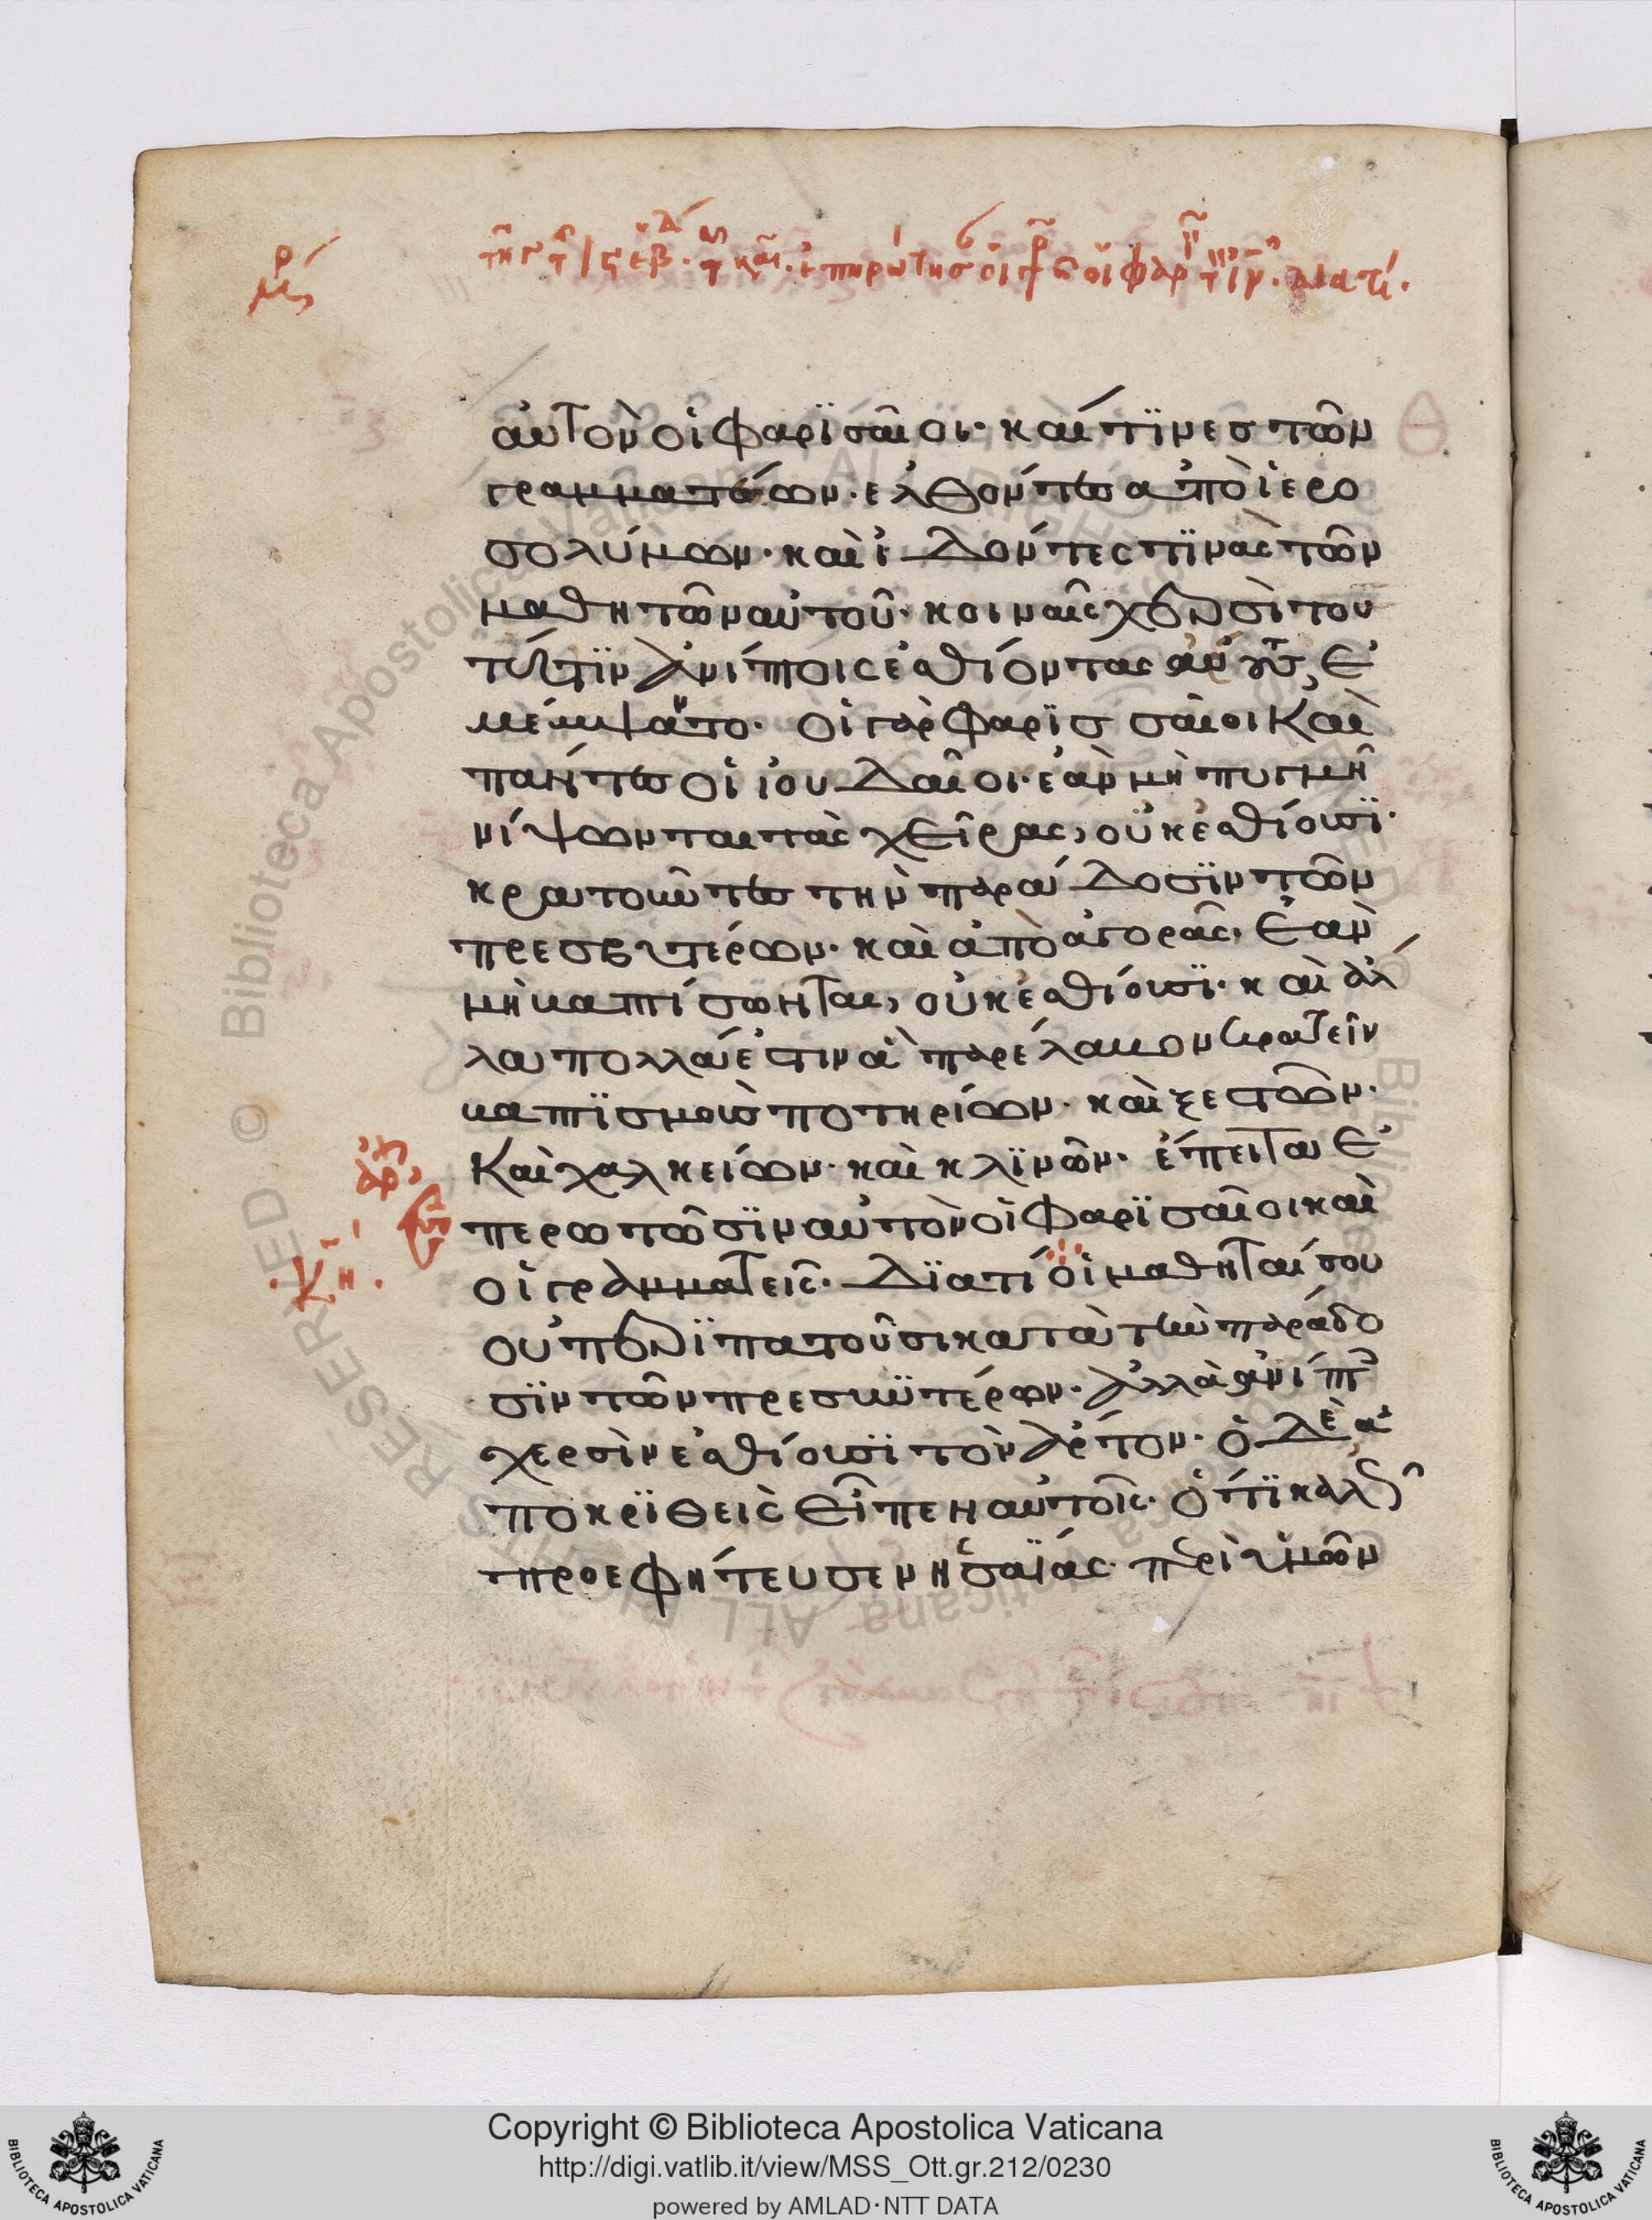 αὐτὸν οἱ φαρϊσαῖοι· καί τϊνεσ τῶν
γραμματέων· ελθόντεσ ἀπὸ ἱερο
σολύμων· καὶ ἰδόντες τϊνὰς τῶν
μαθητῶν αὐτοῦ· κοιναῖς χερσὶ του
τέστϊν ἀνίπτοις ἐσθίοντας ἄρτους, ἐ
μέμψαντο· οἱ γὰρ φαρϊσ σαῖοι καὶ
πάντεσ οἱ ἰουδαῖοι· ἐὰν μὴ πυγμῆ
νίψωνται τὰς χεῖρας, οὐκ ἐσθίουσϊ·
κρατοῦντεσ τὴν παράδοσϊν τῶν
πρεσβυτέρων· καὶ ἀπὸ ἀγορᾶς· ἐὰν
μὴ βαπτίσωνται, οὐκ ἐσθίουσϊ· καὶ ἄλ
λα πολλά ἐστιν ἃ παρέλαβον κρατεῖν
βαπτϊσμοὺσ ποτηρίων· καὶ ξεστῶν·
καὶ χαλκείων· καὶ κλϊνῶν· ἔπειτα ἐ
περωτῶσϊν αὐτὸν οἱ φαρϊσαῖοι καὶ
οἱ γραμματεῖς· Δϊατί οἱ μαθηταί σου
οὐ περϊπατοῦσι κατὰ τὴν παράδο
σϊν τῶν πρεσβϋτέρων· ἀλλὰ ἀνίπτοις
χερσὶν ἐσθίουσϊ τὸν ἄρτον· ὁ δὲ ἀ
ποκρϊθεὶς εἶπεν αὐτοῖς· ὅτϊ καλῶς
προεφήτευσεν ἡσαΐας· περὶ ὑμῶν
Copyright © Biblioteca Apostolica Vaticana
http://digi.vatlib.it/view/MSS_Ott.gr.212/0230
powered by AMLAD·NTT DATA